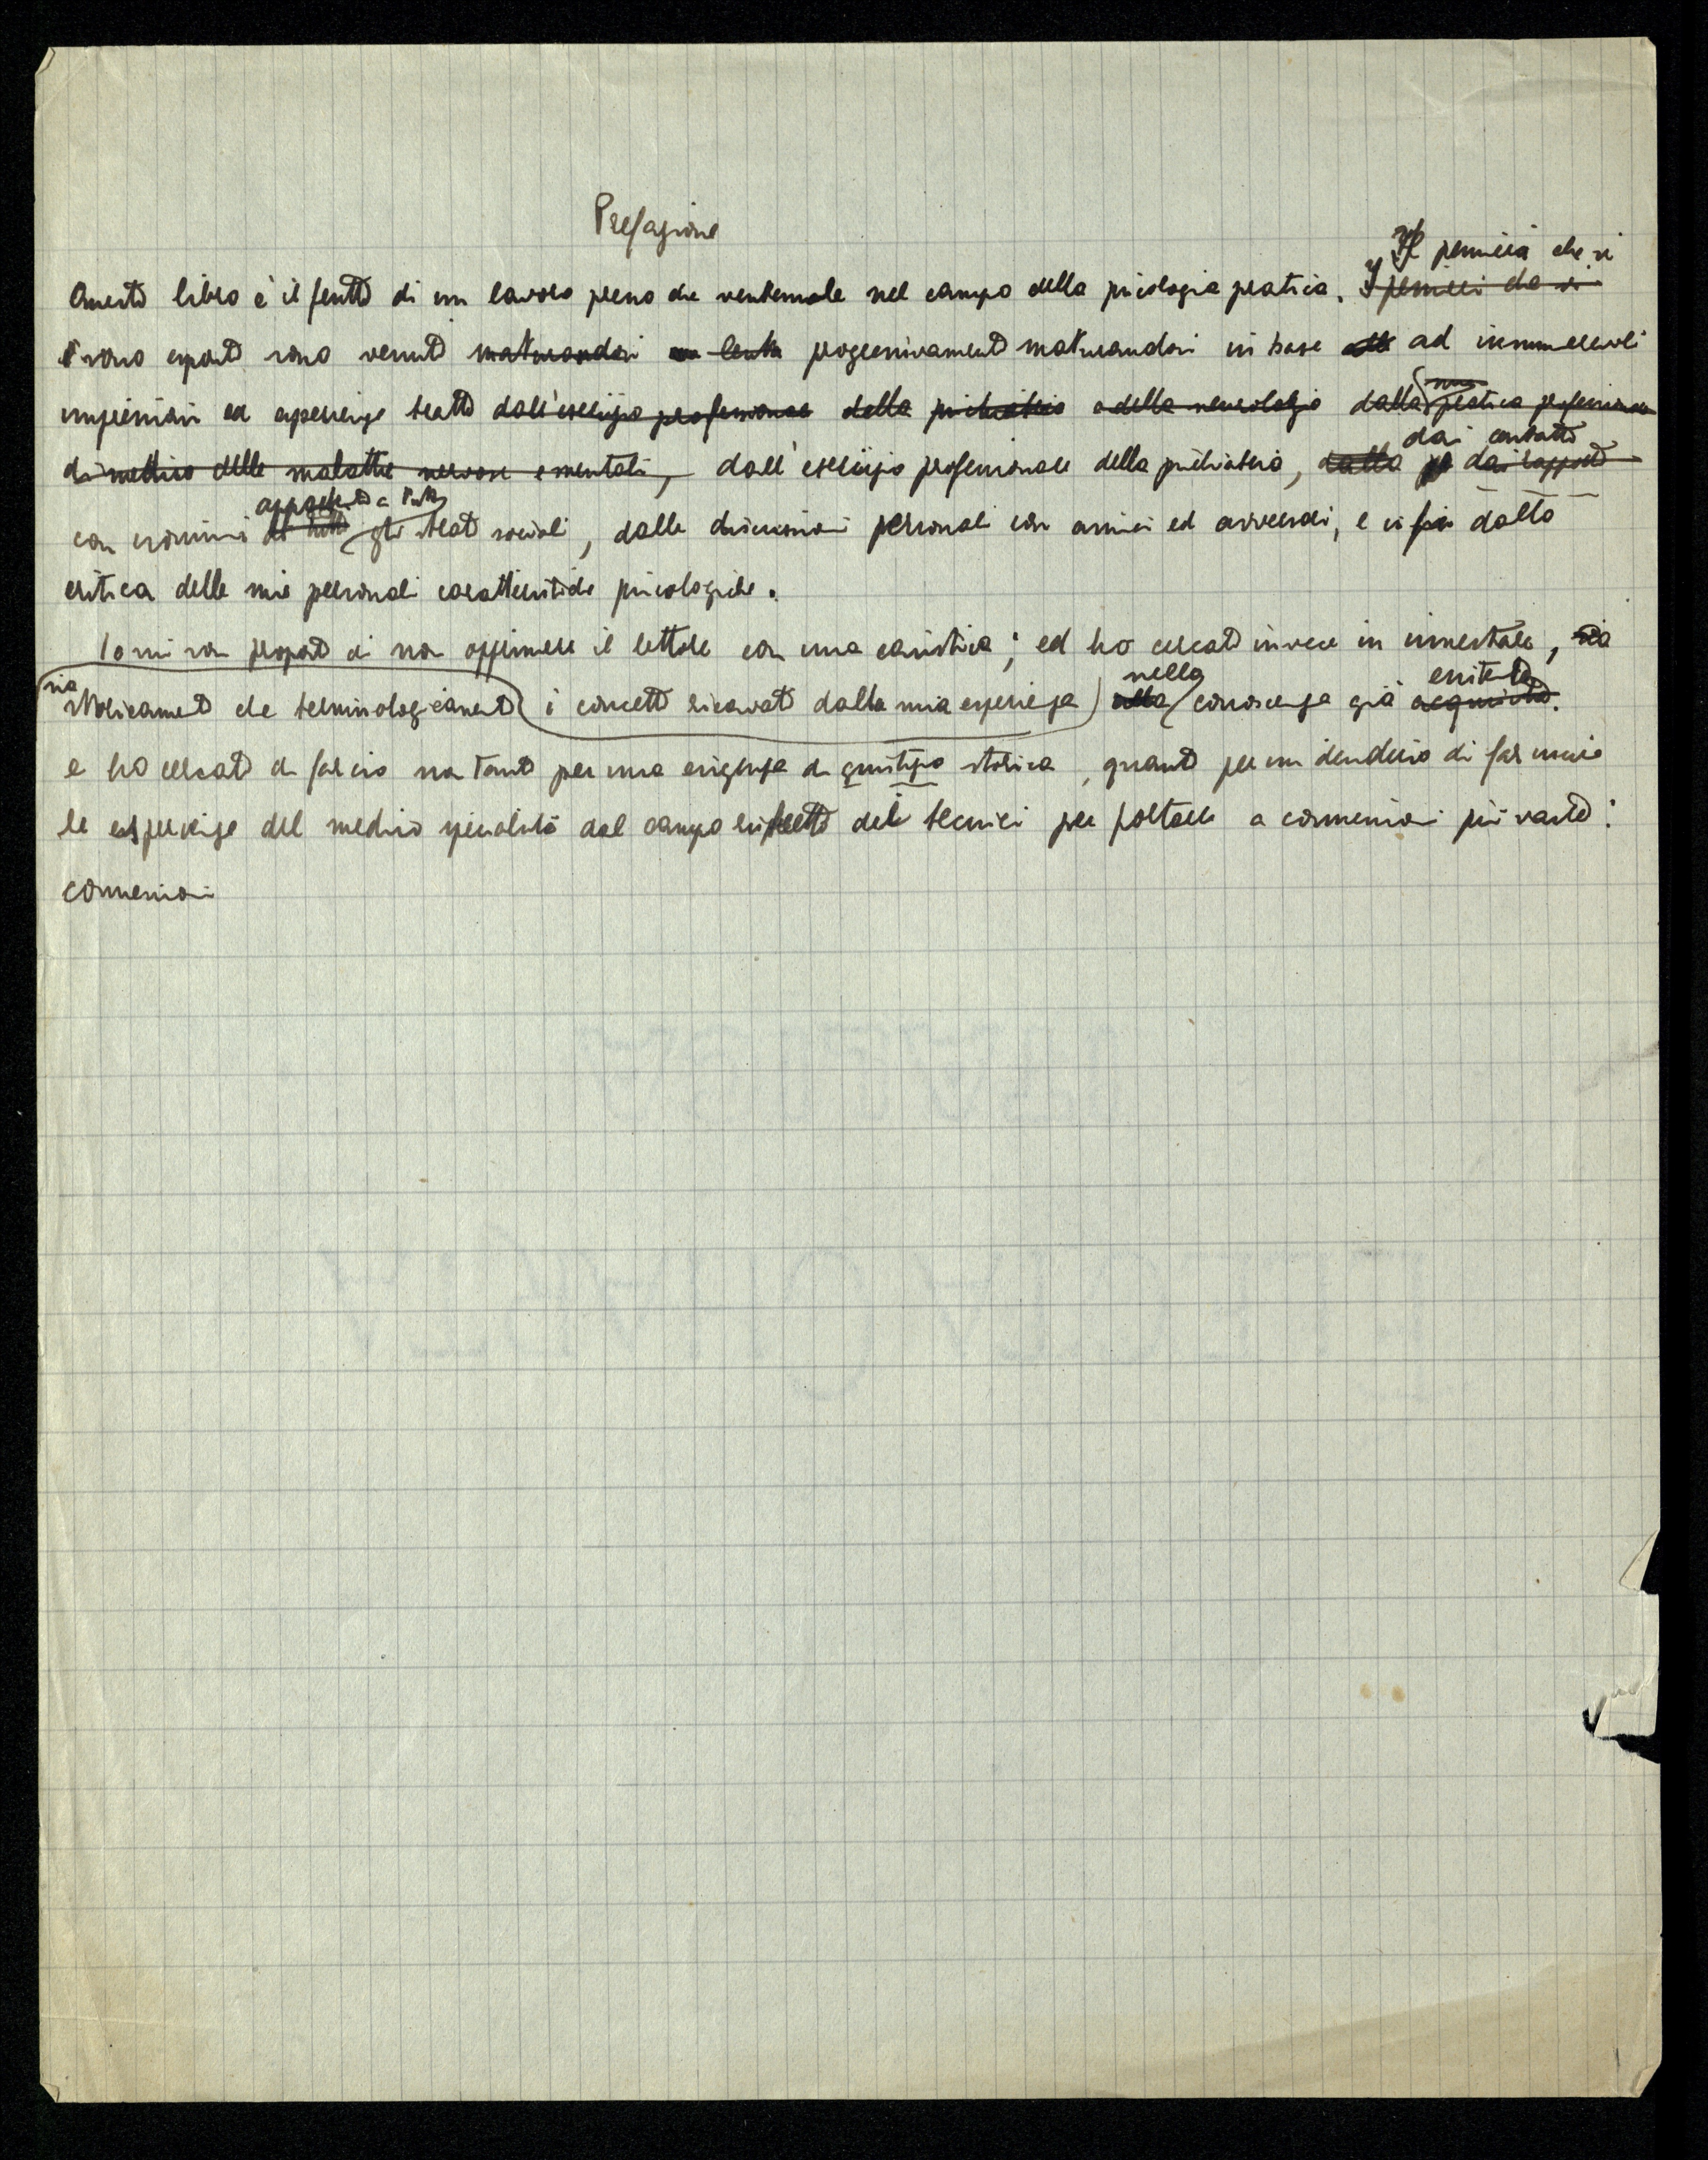 Prefazione
Il pensiero che vi
Questo libro è il frutto di un lavoro meno che ventennale nel campo della psicologia pratica. I pensieri che vi
sono esposti sono venuti maturandosi lenta progressivamente maturandosi in base alle ad innumerevoli
impressioni ed esperienze tratte dall'esercizio professionale della psichiatria e della neurologia dalla mia pratica professionale
di medico delle malattie nervose e mentali, dall'esercizio professionale della psichiatria, dalla dai rapporti
dai contatti
con uomini di tutti gli strati sociali, dalle discussioni personali con amici ed avversari, e infin dalla
appartenenti a tutti
critica delle mie personali caratteristiche psicologiche.
Io mi son proposto di non opprimere il lettore con una casistica; ed ho cercato invece di innestare, sia
sia storicamente che terminologicamente i concetti ricavati dalla mia esperienza nella alla conoscenza già acquisita.
esistente
e ho cercato di far ciò non tanto per una esigenza di giustizia storica, quanto per un desiderio di far uscire
le esperienze del medico specialista dal campo ristretto dei tecnici per portarle a connessioni più vaste:
connessioni